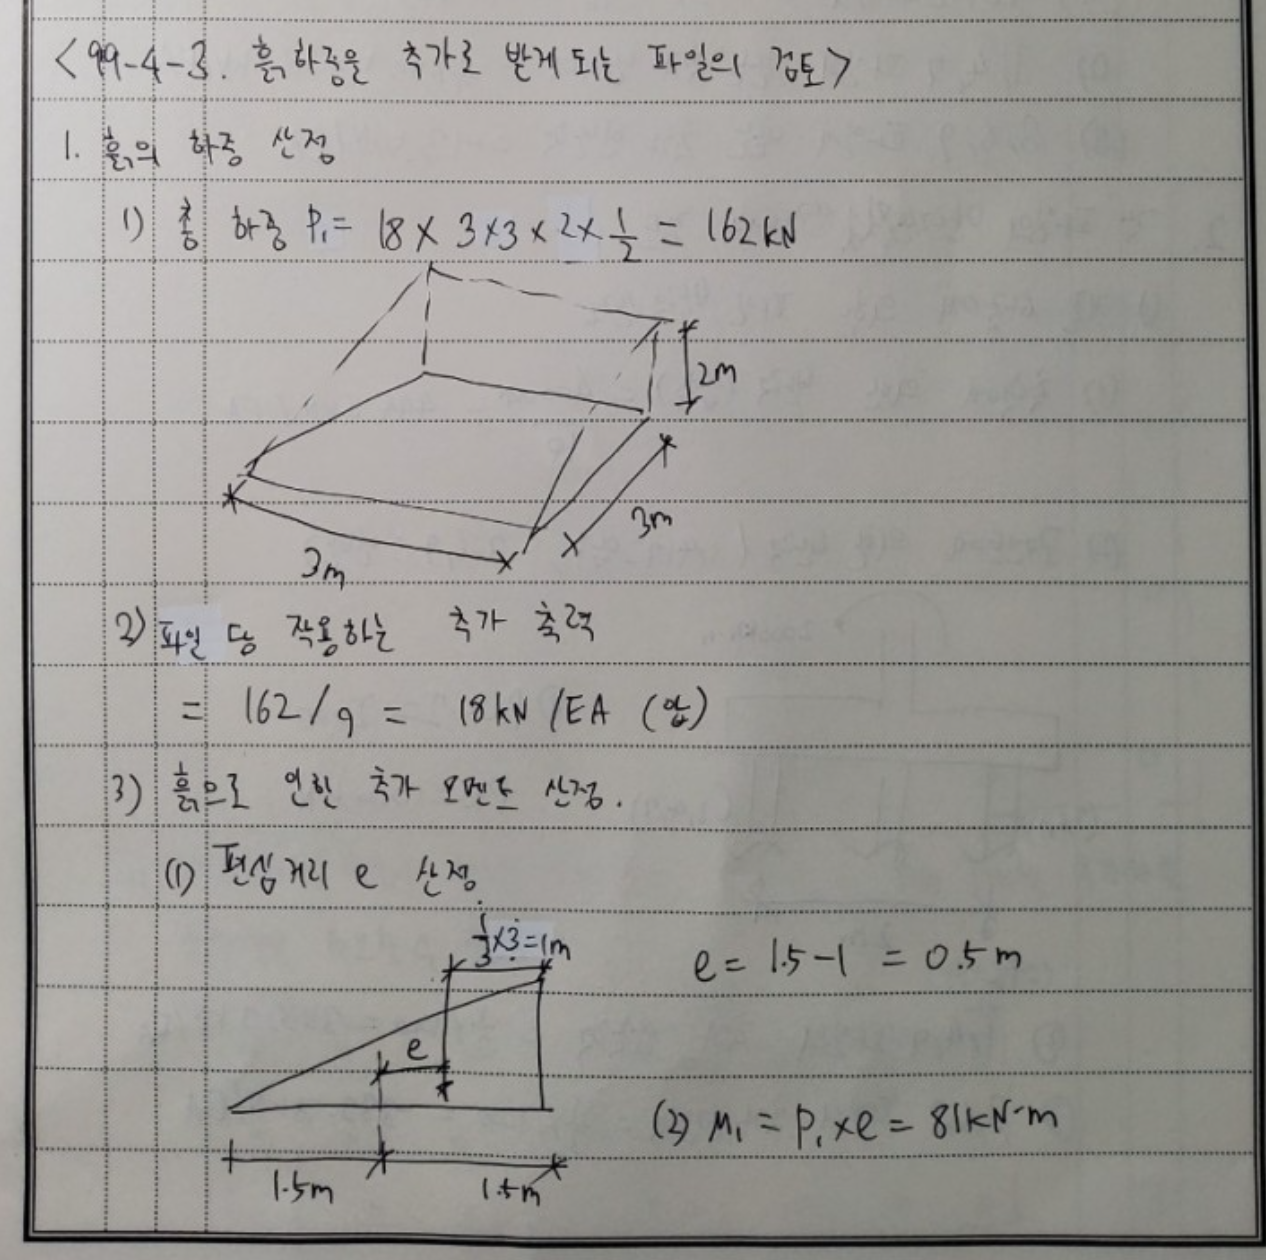 <99-4-3. 흙하중을 추가로 받게 되는 파일의 검토>
1. 흙의 하중 산정
1) 총 하중 P₁= 18 x 3x3 x 2 x 1/2 = 162kN
2m
3m
3m
2) 파일 당 작용하는 추가 축력
= 162/9 = 18kN/EA (압)
3) 흙으로 인한 추가 모멘트 산정.
(1) 편심거리 e 산정.
1/3x3=1m
e= 1.5-1 = 0.5m
e
(2) M₁ = P₁xe = 81kN·m
1.5m 1.5m